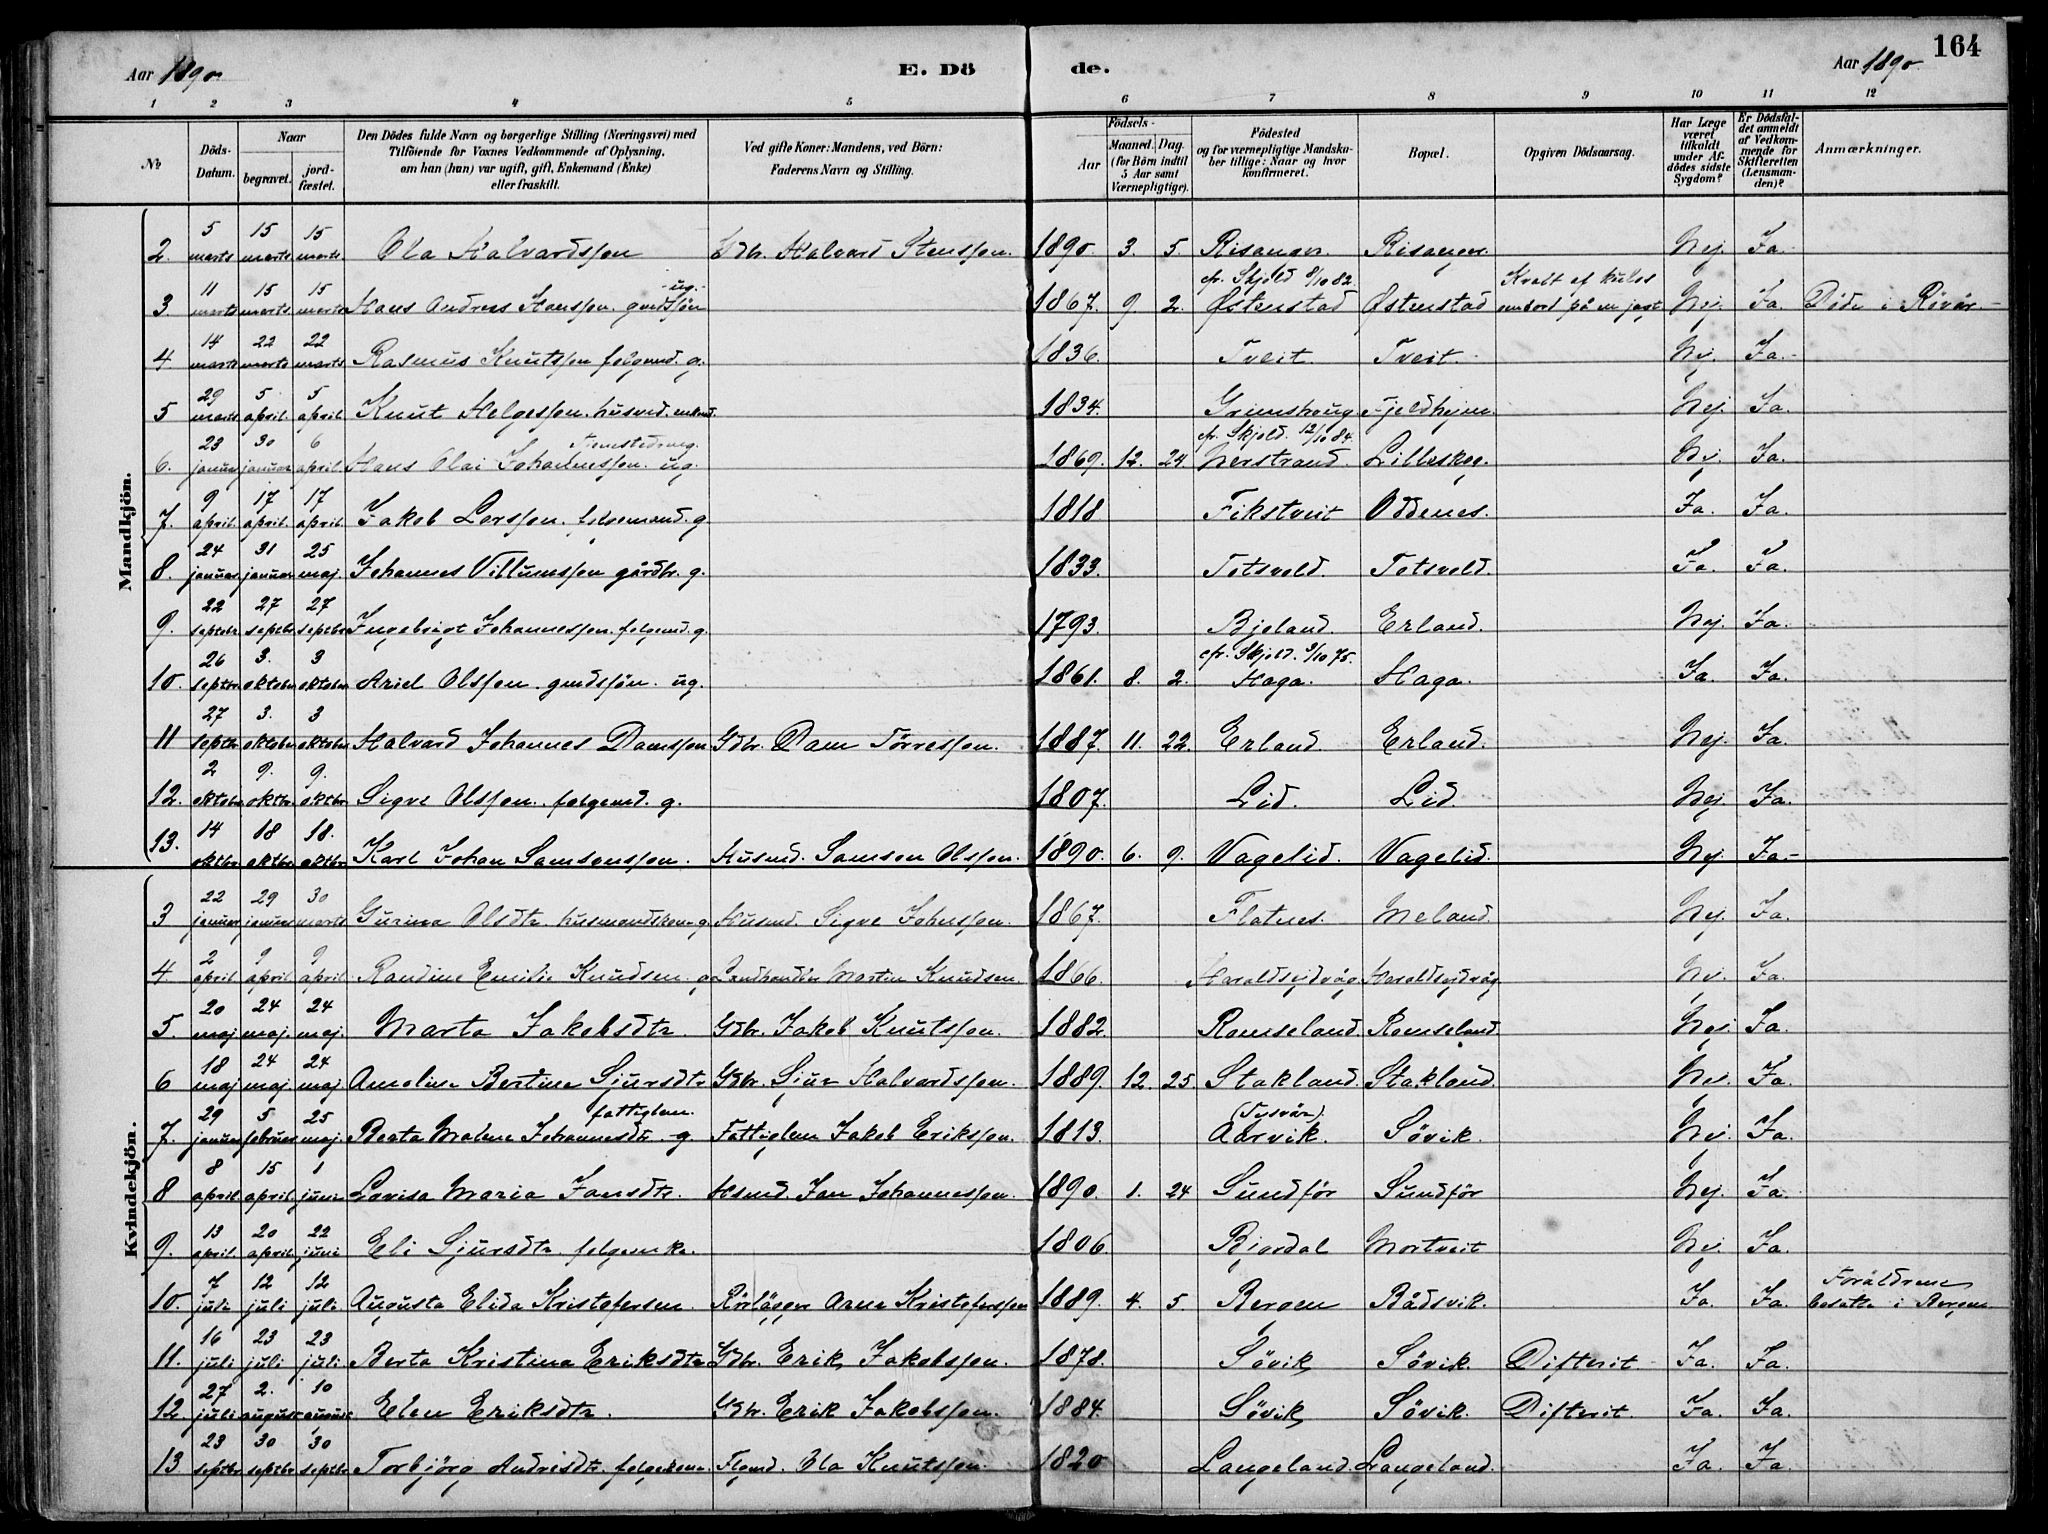 Aar 1890. E. Dö de. Aar 1890. 164
1 2 3 4 5 6 7 8 9 10 11 12
№ Döds-Datum. Naar begravet. jordfæstet. Den Dödes fulde Navn og borgerlige Stilling (Næringsvei) med Tilföiende for Voxnes Vedkommende af Oplysning, om han (hun) var ugift, gift, Enkemand (Enke) eller fraskilt. Ved gifte Koner: Mandens, ved Börn: Faderens Navn og Stilling. Födsels- Aar Maaned. Dag. (for Börn indtil 5 Aar samt Værnepligtige). Födested og for værnepligtige Mandskaber tillige: Naar og hvor konfirmeret. Bopæl. Opgiven Dödsaarsag. Har Læge været tilkaldt under Afdödes sidste Sygdom? Er Dödsfaldet anmeldt af Vedkommende for Skifteretten (Lensmanden)? Anmærkninger.
Mandkjön.
2. 5 marts 15 marts 15 marts Ola Halvardsson Gdbr. Halvard Stensson. 1890. 3. 5. Risanger. Risanger. Nej. Ja.
3. 11 marts 15 marts 15 marts Hans Andreas Hansson. gmdssön ug. 1867. 9. 2. cfr. Skjold 8/10 82. Østenstad Østenstad Kvalt af kulos ombord på en jagt Nej. Ja. Döde i Rövär.
4 14 marts 22 marts 22 marts Rasmus Knutsson folgemd. g. 1836. Tveit. Tveit. Nej. Ja.
5 29 marts 5 april. 5 april. Knut Helgesson. husmd. enkmd. 1834. Grimshoug. Fjeldhejm. Nej. Ja.
6. 23 januar 30 januar 6 april Hans Olai Johannesson. ug. 1869. 12. 24 cfr. Skjold. 12/10 84. Nerstrand. Lilleskog. Nej. Ja.
7. 9 april. 17 april. 17 april. Jakob Larsson. folgemand. g 1818 Fikstveit Oddenes. Ja. Ja.
8. 24 januar. 31 januar 25 maj. Johannes Villumsson gårdbr. g. 1833. Totsvold. Totsvold. Ja. Ja.
9. 22 septebr. 27 septbr. 27 septbr Ingebrigt Johannesson. folgemd. g. 1793. Bjoland. Erland. Nej. Ja.
10. 26 septbr 3. oktobr 3 oktobr Ariel Olsson. gmdssön. ug. 1861. 8. 2. cfr. Skjold. 3/10 75. Haga. Haga. Ja. Ja.
11 27 septbr 3. oktobr 3 oktobr Halvard Johannes Damsson Gdbr. Dam Törresson. 1887. 11. 22. Erland. Erland. Nej. Ja.
12. 2 oktobr 9. oktbr. 9. oktbr Sigve Olsson. folgemd. g. 1807. Lid. Lid Nej. Ja.
13. 14 oktbr. 18 oktbr 18. oktbr Karl Johan Samsonsson. Husmd. Samson Olsson. 1890. 6. 9. Vagelid. Vagelid. Nej. Ja.
Kvindekjön.
3 22 januar 29 januar 30 marts Gurina Olsdtr. husmandskone g. Husmd. Sigve Johnsson. 1867. Flatnes. Meland. Nej. Ja.
4 2 april 9 april 9 april. Randine Emilie Knudsen. g Landhandler Martin Knudsen. 1866. Haraldseidvåg. Haraldseidvåg Nej. Ja.
5. 20 maj 24 maj. 24 maj. Marta Jakobsdtr. Gdbr. Jakob Knutsson. 1882. Ramseland. Ramseland. Nej Ja.
6 18 maj 24 maj 24 maj Amoline Bertine Sjursdtr Gdbr. Sjur Halvardsson. 1889. 12. 25 Stakland. Stakland. Nej. Ja.
7. 29 januar 5 februar 25 maj. Berta Malene Johannesdtr. g fattiglem. Fattiglem Jakob Eriksson. 1813. (Tysvär). Aarvik. Sövik. Nej. Ja.
8 8 april. 15 april. 1 juni Lovisa Maria Jansdtr. Hsmd. Jan Johannesson. 1890. 1. 24 Sundför Sundför Nej. Ja.
9. 13 april. 20 april. 22 juni Eli Sjursdtr. folgeenke. 1806. Bjordal Mortveit Nej. Ja.
10. 7 juli 12 juli 12 juli Augusta Elida Kristofersen. Rörlägger Arne Kristofersson 1889. 4. 5 Bergen Rådsvik. Ja. Ja. Forældrene bosatte i Bergen
11. 16 juli 23 juli 23 juli. Berta Kristina Eriksdtr Gdbr. Erik Jakobsson. 1878. Sövik, Sövik. Difterit Ja. Ja.
12. 27 juli 2. august 10 august Elen Eriksdtr. Gdbr. Erik Jakobsson. 1884. Sövik, Sövik. Difterit. Ja. Ja.
13 23 septbr 30 septbr 30 septbr Torbjörg Andrisdtr. folgekone Flgmd. Ola Knutsson. 1820 Langeland. Langeland. Ja. Ja.